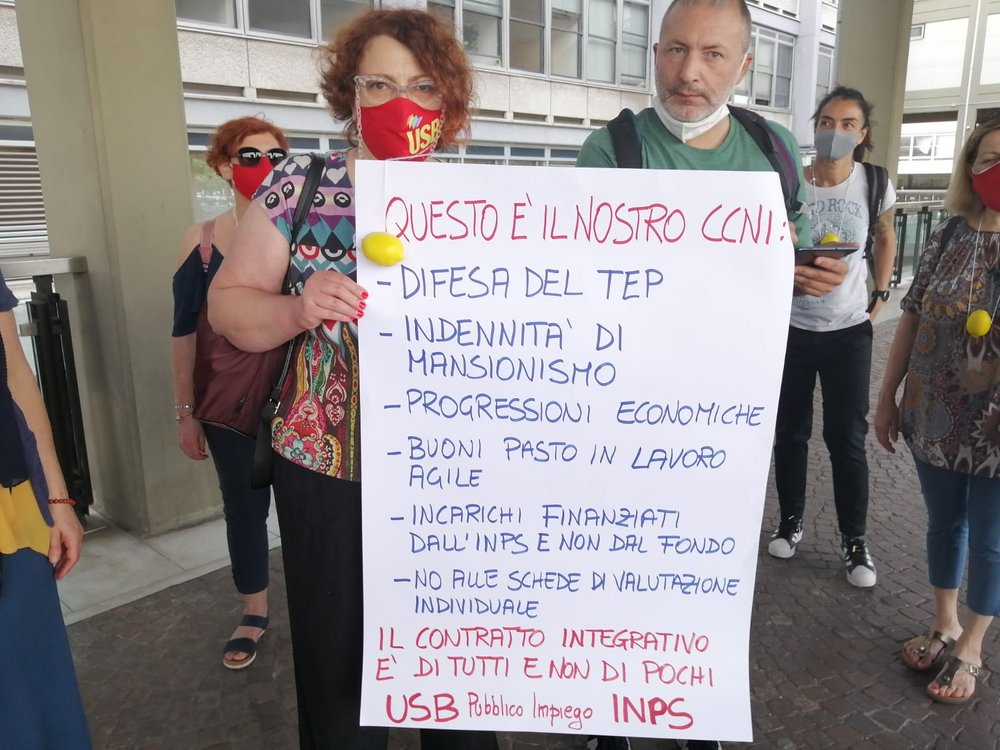 USB
QUESTO E' IL NOSTRO CCNI:
- DIFESA DEL TEP
- INDENNITA' DI
MANSIONISMO
- PROGRESSIONI ECONOMICHE
- BUONI PASTO IN LAVORO
AGILE
- INCARICHI FINANZIATI
DALL'INPS E NON DAL FONDO
- NO ALLE SCHEDE DI VALUTAZIONE
INDIVIDUALE
IL CONTRATTO INTEGRATIVO
E' DI TUTTI E NON DI POCHI
USB Pubblico Impiego INPS